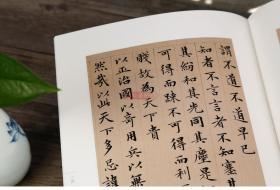 謂不道不道早已
知者不言言者不知塞
其紛和其光同其塵是
可得而踈不可得而利
賤故為天下貴
以正治國以奇用兵以無
然哉以此天下多忌諱